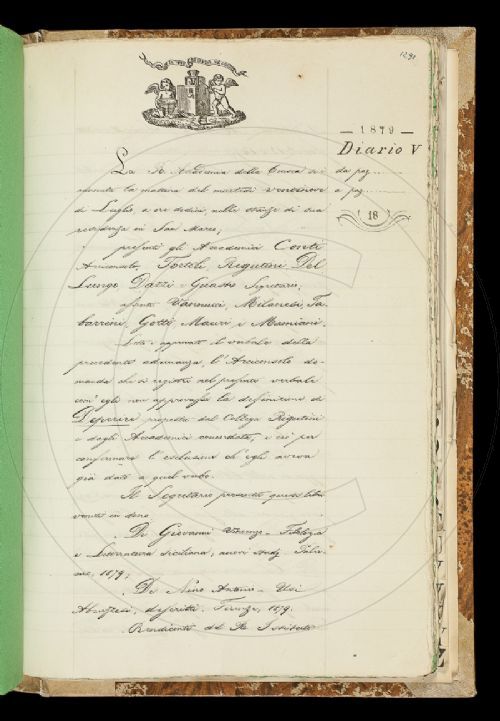 1291
— 1879 —
Diario V
da pag....
a pag....
18
La R. Accademia della Crusca ra-
dunata la mattina del martedì ventinove
di Luglio, a ore dodici, nelle stanze di sua
residenza in San Marco;
presenti gli Accademici Conti
Arciconsolo, Tortoli Rigutini Del
Lungo Dazzi e Guasti Segretario;
assenti Vannucci, Milanesi, Ta-
barrini, Gotti, Mauri e Mamiani.
Letto e approvato il verbale della
precedente adunanza, l'Arciconsolo do-
manda che si registri nel presente verbale
com' egli non approvasse la definizione di
Deperire proposta dal Collega Rigutini
e dagli Accademici concordata, e ciò per
confermare l'esclusione ch'egli aveva
già dato a quel verbo.
Il Segretario presenta questi libri
venuti in dono
Di Giovanni Vincenzo - Filologia
e Letteratura siciliana, nuovi studj. Paler-
mo, 1879;
De Nino Antonio - Usi
Abruzzesi, descritti. Firenze, 1879.
Rendiconti del R. Istituto